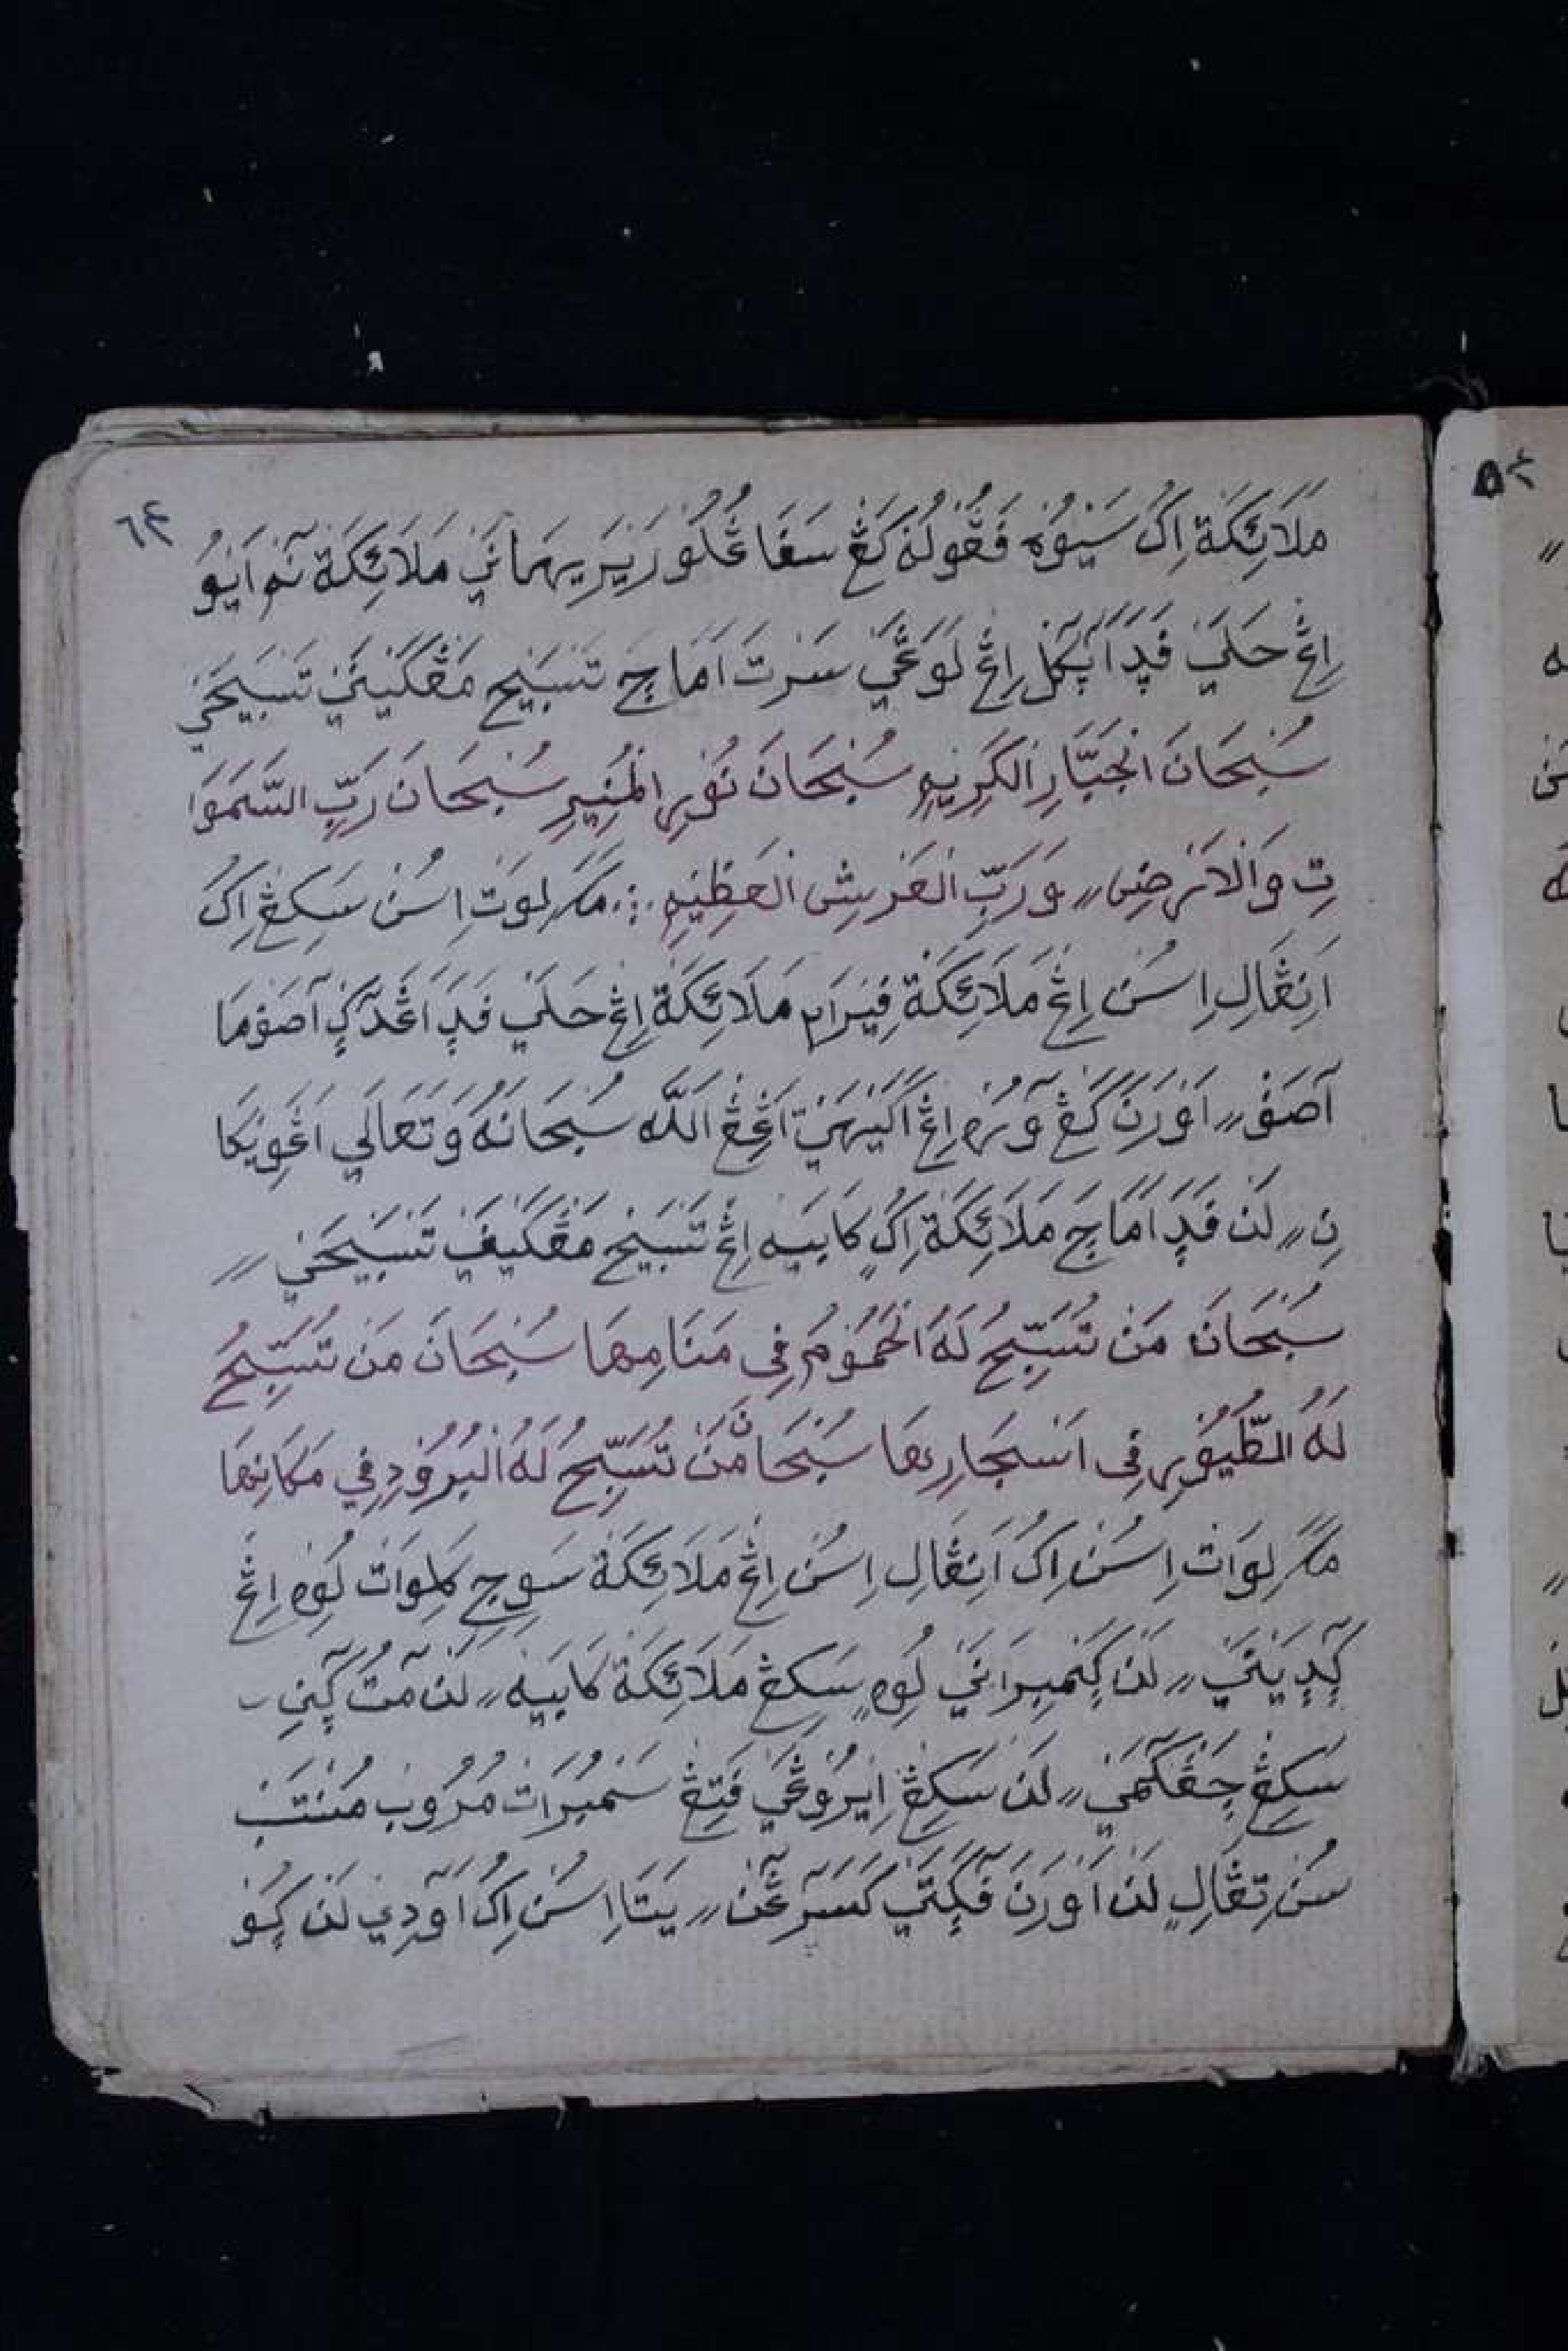 ٦٤
مَلَائِكَةْ اِكُ سَيُوْهْ فَڠَوُلُنْ كَڠْ سَڤَا عُلُوْرْ نِيْرَ يَهِمَانَيْ مَلَائِكَةْ نَمْ اَيُوُ
اِڠْ حَلَيْ فَدٍ اَڽَكَلْ اِڠْ لَوَڠَيْ سَرْتَ اَمَاچَ تَسْبَيْح مَڠْكَيْنَيْ تَسْبِيْحَيْ
سُبْحَانَ الْجَبَّارِ الْكَرِيْمِ سُبْحَانَ نُوْرِ الْمُنِيْرِ سُبْحَانَ رَبِّ السَّمَوَا
تِ وَالْاَرْضِ ،، وَرَبِّ الْعَرْشِ الْعَظِيْمِ ؞ مَكَ لِوَتْ اِسُنْ سَكِڠْ اِكُ
اَنِڠَّالِ اِسُنْ اِڠْ مَلَائِكَةْ فِيْرَاڠْ مَلَائِكَةْ اِڠْ حَلَيْ فَدٍ اَڠَدَڮْ اَصَوْمَا
اَصَوْ ،، اَوْرَنَ كَڠْ وَرُهْ اِڠْ اَكَيْهَيْ اَڠِڠْ اللّٰه سُبْحَانَهُ وَتَعَالَي اَڠَوِيْكَا
نِ ،، لَنْ فَدٍ اَمَاچَ مَلَائِكَةْ اِكُ كَابَيْهْ اِڠْ تَسْبَيْح مَڠْكَيْنَيْ تَسْبَيْحَيْ ،،
سُبْحَانَ مَنْ تُسَبِّحُ لَهُ الْحُمُوْمُ فِي مَنَامِهَا سُبْحَانَ مَنْ تُسَبِّحُ
لَهُ الطُّيُوْرِ فِي اَسْجَارِهَا سُبْحَانَ مَنْ تُسَبِّحُ لَهُ الْبُرُوْدِ فِي مَكَانِهَا
مَكَ لِوَاتْ اِسُنْ اِكُ اَنِڠَّالِ اِسُنْ اِڠْ مَلَائِكَةْ سَوِجِ كَلِوَاتْ لُوِهْ اِڠْ
ڮَدٍيْنَيْ ،، لَنْ ڮَمْبِرَانَيْ لُوِهْ سَكِڠْ مَلَائِكَةْ كَابَيْهْ ،، لَنْ مَتُ ڮَنِ
سَكِڠْ چَڠْكَمَيْ ،، لَنْ سَكِڠْ اِيْرُوْڠَيْ فَتِڠْ سَمْبُرَاتْ مُرُوْبْ مُنْتَبْ
سُنْ تِڠَّالِ لَنْ اَوْرَنَ فَڮَتَيْ كَسَرَڠَنْ ،، يَتَا اِسُنْ اِكُ اَوَدِيْ لَنْ ڮَوُ